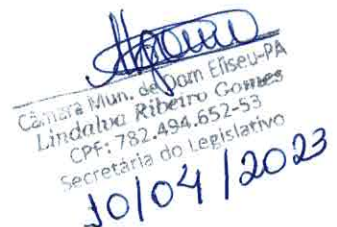 Câmara Mun. de Dom Eliseu-PA
Lindalva Ribeiro Gomes
CPF: 782.494.652-53
Secretária do Legislativo
10/04/2023